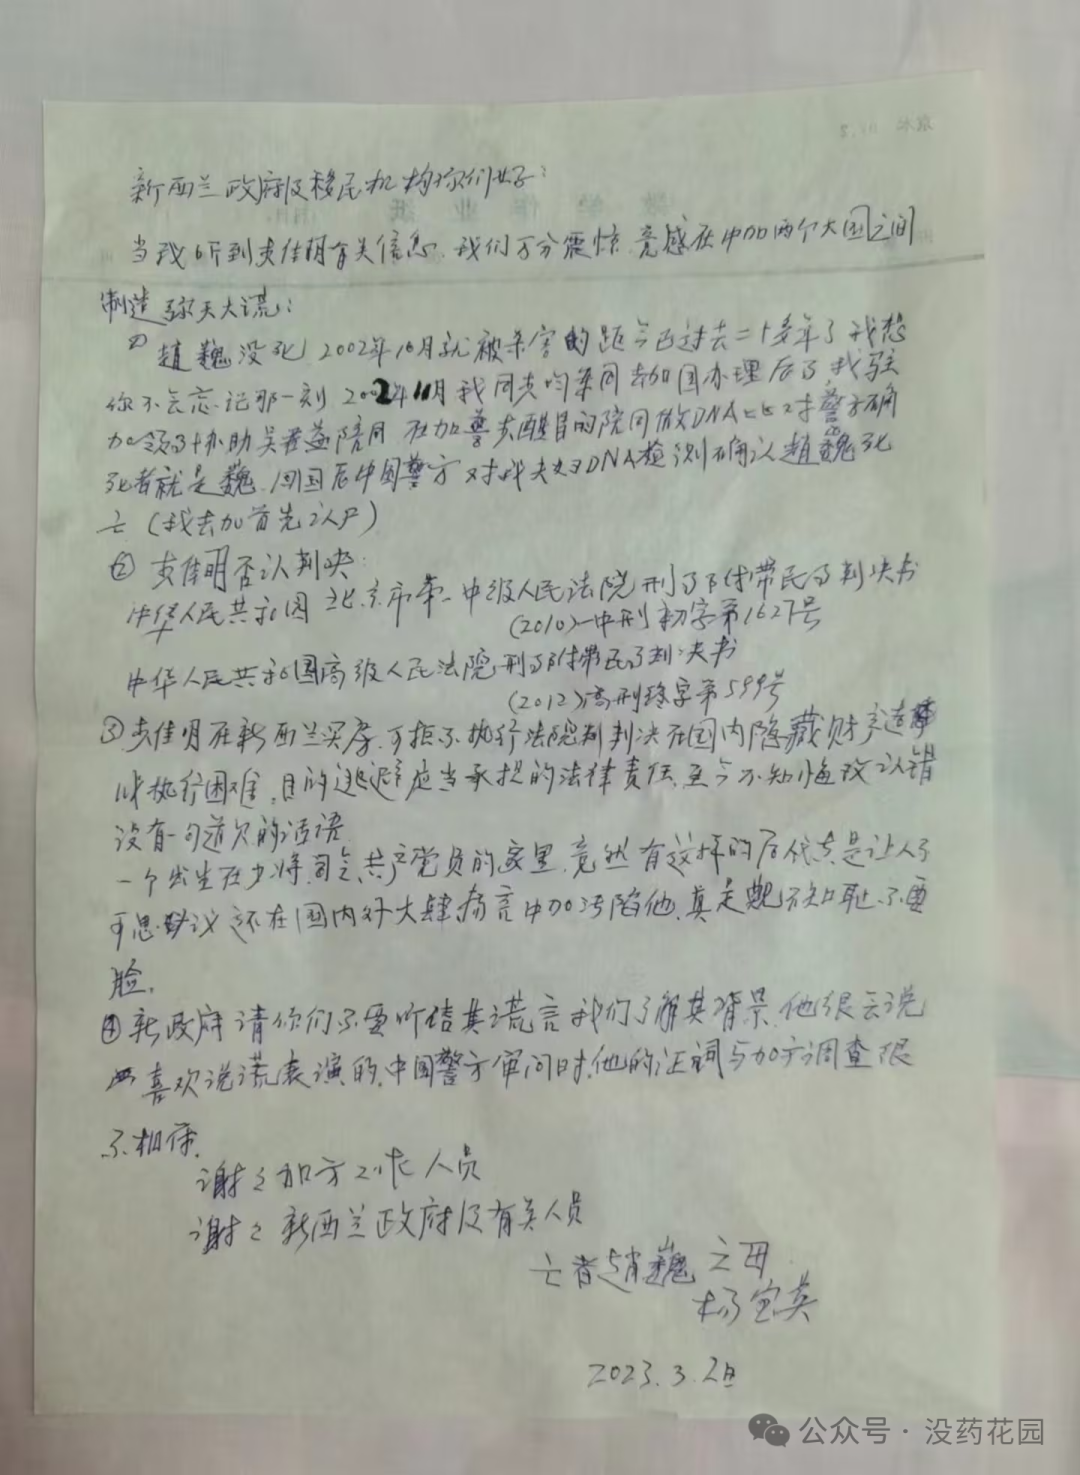 新西兰政府及移民机构你们好：
当我听到李佳明有关信息，我们万分震惊，竟感在中加两个大国之间
制造弥天大谎：
① 趙巍没死，2002年10月就被杀害的距今已过去二十多年了我想
你不会忘记那一刻 2002年11月我同 去加国办理后事我驻
加领事协助吴 陪同 在加警 医院同做DNA比对警方确
死者就是巍，回国后中国警方对我夫妇DNA检测确认趙巍死
亡（我去加首先认尸）
② 李佳明否认判决：
中华人民共和国北京市第一中级人民法院刑事附带民事判决书
(2010)一中刑初字第1627号
中华人民共和国高级人民法院刑事附带民事判决书
(2012)高刑终字第599号
③ 李佳明在新西兰买房，可拒不执行法院判决在国内隐藏财产造
成执行困难，目的逃避应当承担的法律责任，至今不知悔改认错
没有一句道欠的话语
一个出生在少将司令、共产党员的家里，竟然有这样的后代真是让人不
可思议还在国内外大肆扬言中加污陷他，真是 不知耻不要
脸。
④ 新政府请你们不要听信其谎言我们了解其背景，他很会说
喜欢说谎表演的，中国警方审问时，他的证词与加方调查很
不相符。
谢谢加方工作人员
谢谢新西兰政府及有关人员
亡者趙巍之母
杨宝英
2023.3.2日
公众号·没药花园